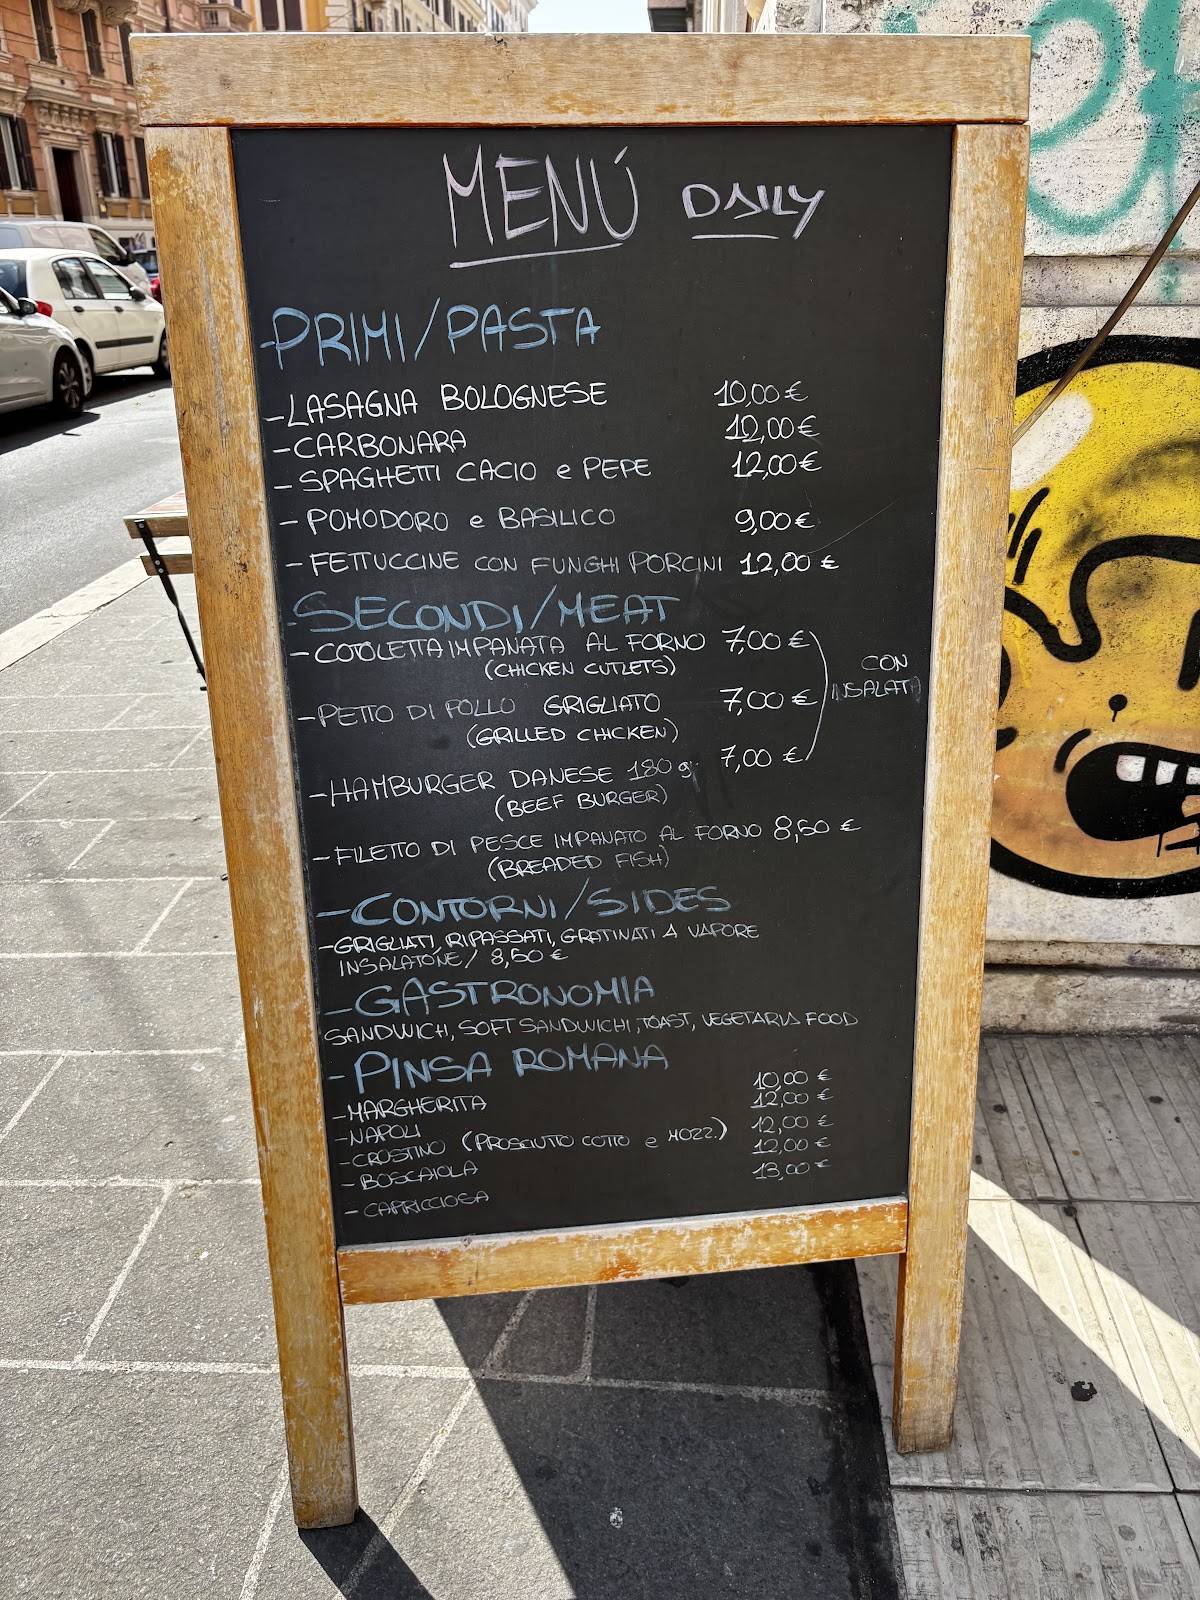 MENÚ DAILY
-PRIMI/PASTA
-LASAGNA BOLOGNESE 10,00 €
-CARBONARA 12,00 €
- SPAGHETTI CACIO e PEPE 12,00 €
- POMODORO e BASILICO 9,00 €
- FETTUCCINE CON FUNGHI PORCINI 12,00 €
-SECONDI/MEAT
-COTOLETTA IMPANATA AL FORNO 7,00 €
(CHICKEN CUTLETS)
CON INSALATA
-PETTO DI POLLO GRIGLIATO 7,00 €
(GRILLED CHICKEN)
-HAMBURGER DANESE 180 g. 7,00 €
(BEEF BURGER)
-FILETTO DI PESCE IMPANATO AL FORNO 8,50 €
(BREADED FISH)
-CONTORNI/SIDES
-GRIGLIATI, RIPASSATI, GRATINATI A VAPORE
INSALATONE/ 8,50 €
-GASTRONOMIA
SANDWICH, SOFT SANDWICHI, TOAST, VEGETARIA FOOD
-PINSA ROMANA
-MARGHERITA 10,00 €
-NAPOLI 12,00 €
-CROSTINO (PROSCIUTTO COTTO e MOZZ.) 12,00 €
-BOSCAIOLA 12,00 €
- CAPRICCIOSA 13,00 €